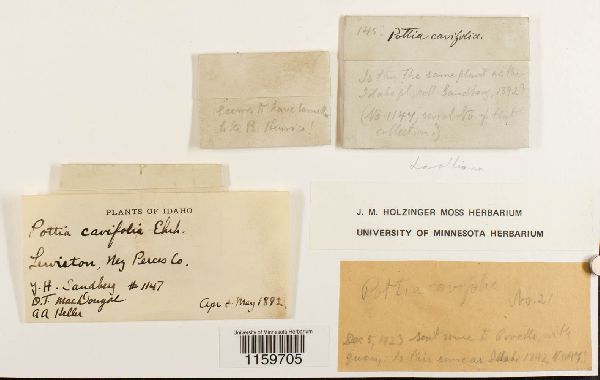 "145"
Pottia cavifolia.
Is this the same plant as the
Idaho pl. coll Sandberg, 1892?
(No 1147, of that
collection?)
Seems to have lamellae
like B. Henrici!
PLANTS OF IDAHO
Pottia cavifolia Ehrh.
Lewiston, Nez Perces Co.
J. H. Sandberg # 1147
D.T. MacDougal
AA Heller
Apr & May 1892
J. M. HOLZINGER MOSS HERBARIUM
UNIVERSITY OF MINNESOTA HERBARIUM
Pottia cavifolia
No. 21
Dec 5, 1923 sent some to with
query. Is this same as Idaho 1892
University of Minnesota Herbarium
1159705